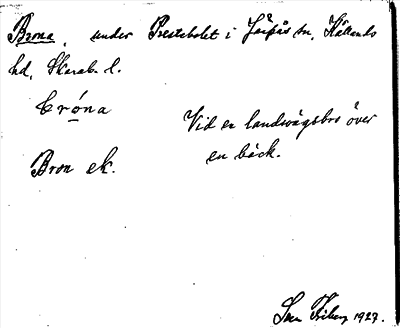 Brona, under Prestebolet i Järpås sn, Kållands
hd, Skarab. l.
bróna
Vid en landsvägsbro över
en bäck.
Bron ek.
Friberg 1927.